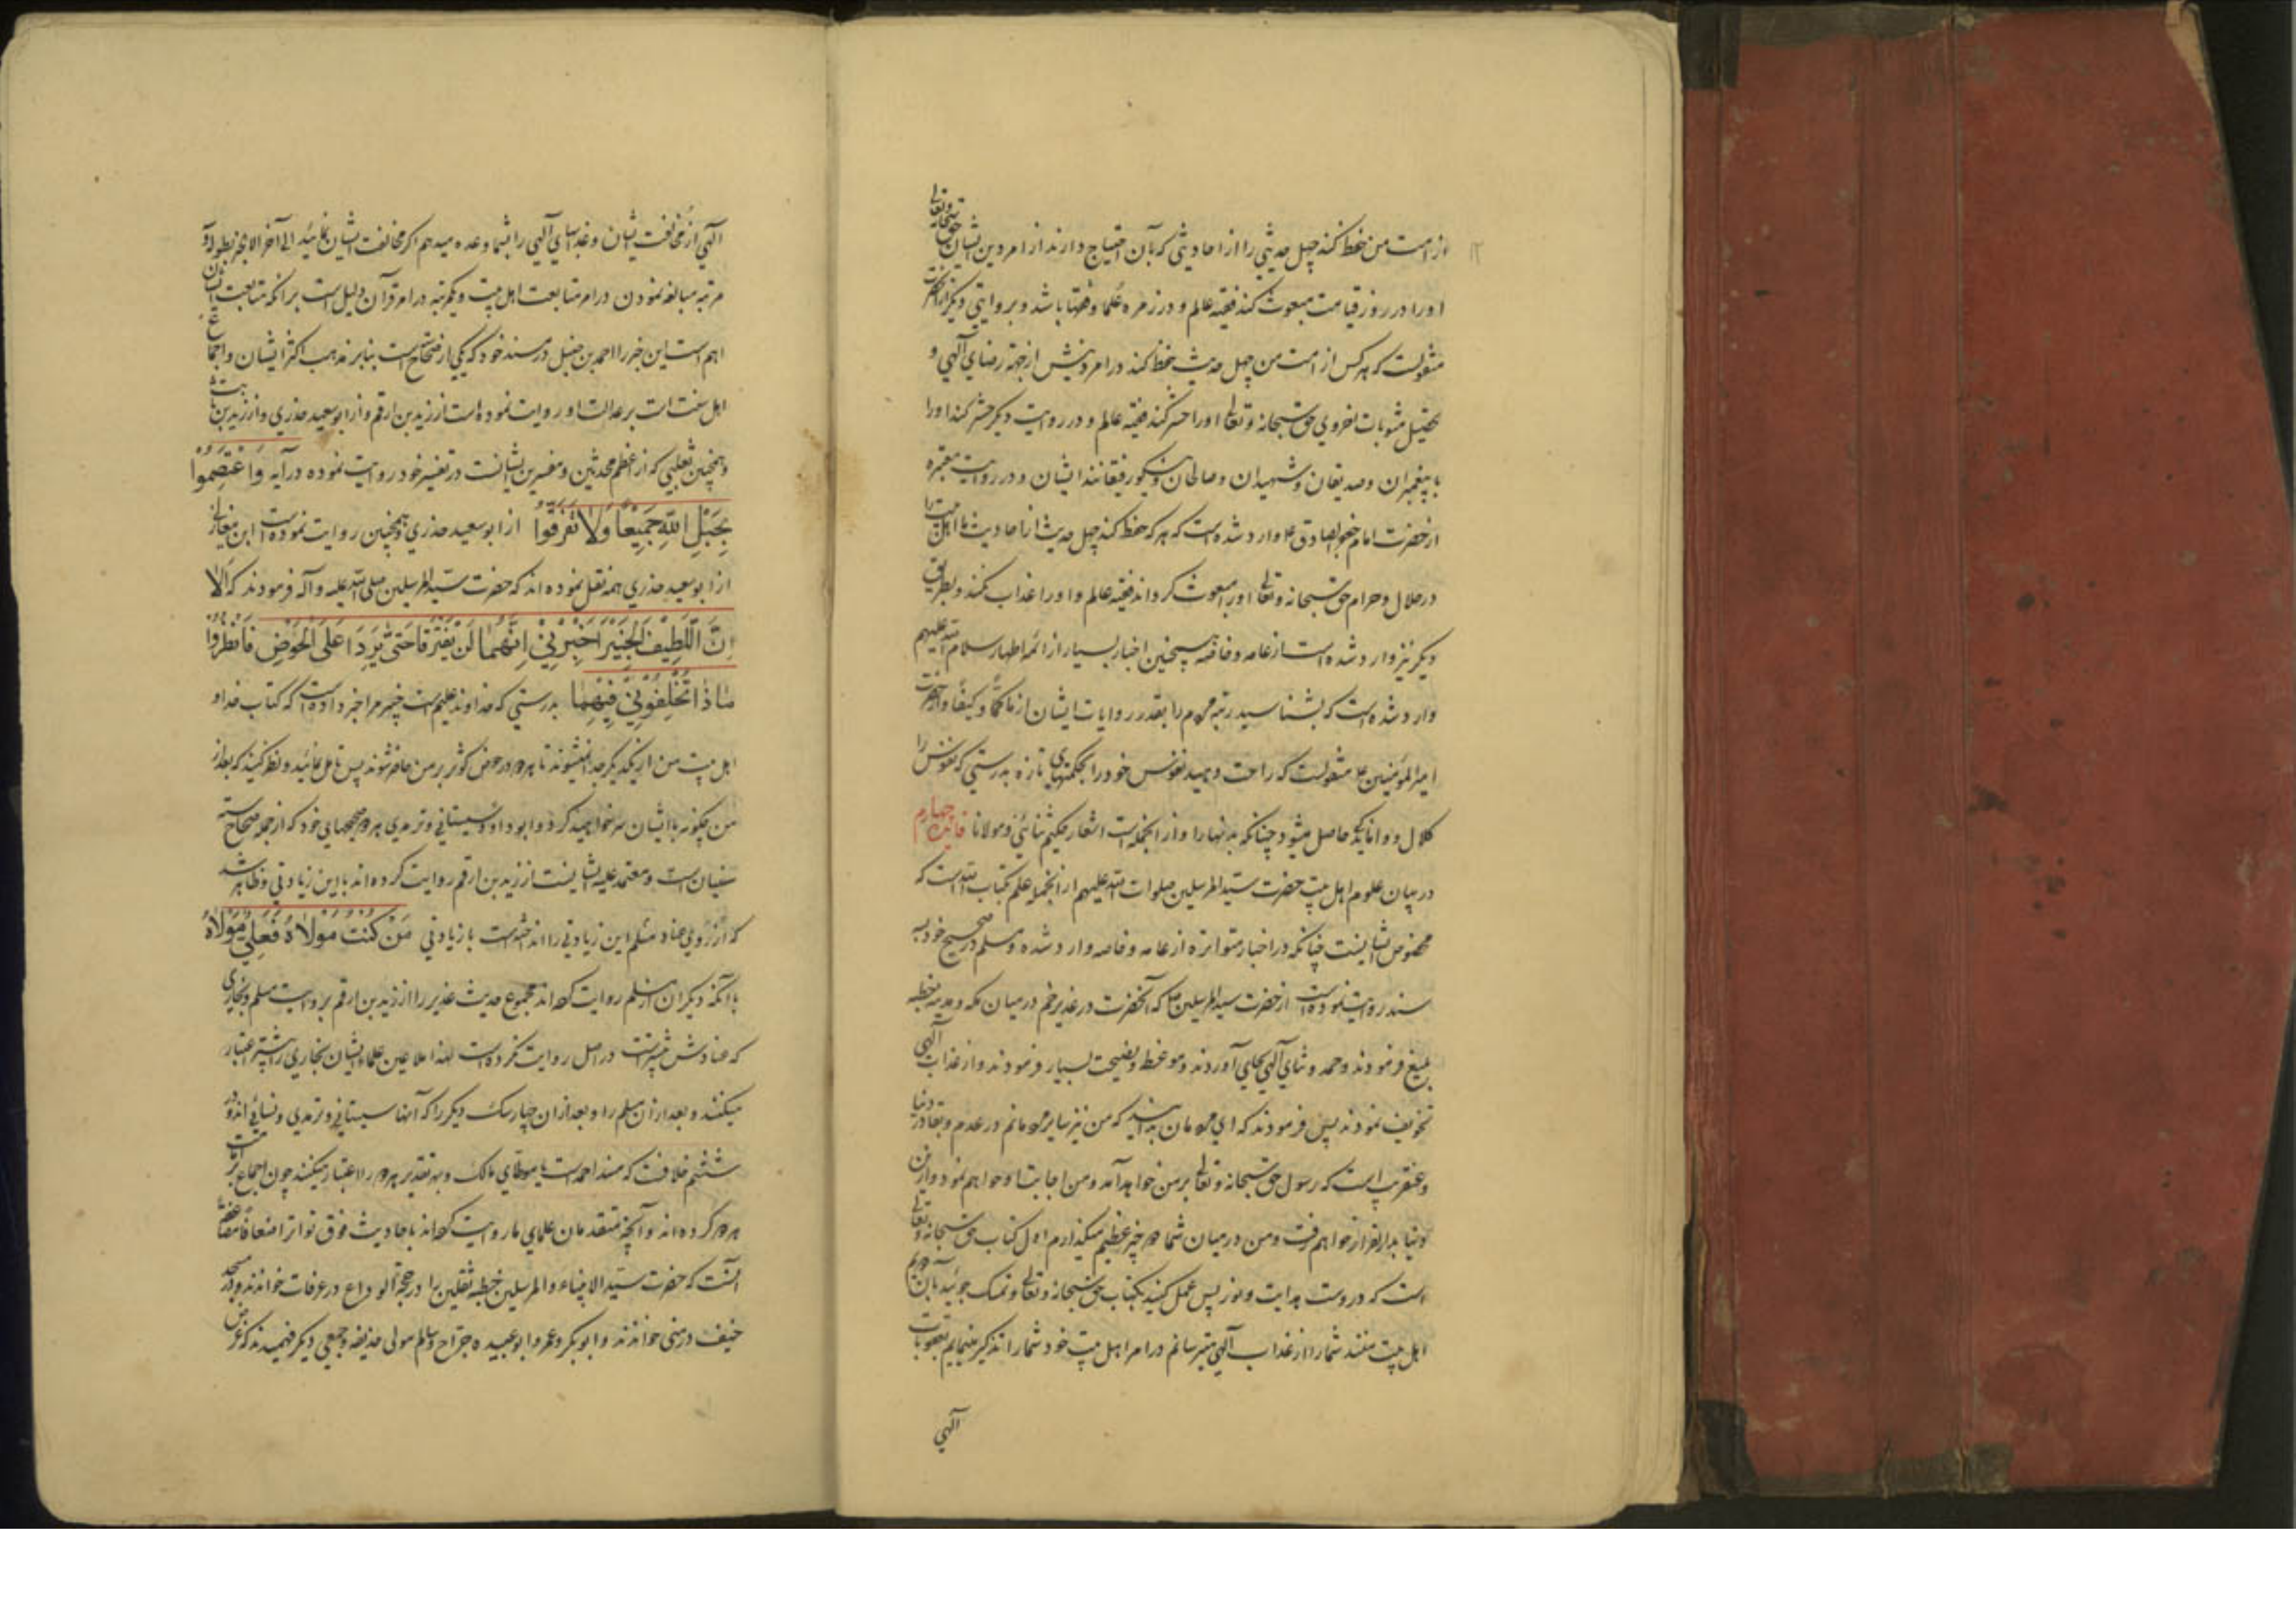 از امت من حفظ کند چهل حدیثی را از احادیثی که بآن احتیاج دارند از امر دین ایشان حق سبحانه و تعالی
او را در روز قیامت مبعوث کند فقیه عالم و در زمره علما و فقها باشد و بروایتی دیکر از آنحضرت
منقولست که هر کس از امت من چهل حدیث حفظ کند در امر دینش از جهة رضای آلهی و
تحصیل مثوبات اخروی حق سبحانه و تعالی او را حشر کند فقیه عالم و در روایت دیکر حشر کند او را
با پیغمبران و صدیقان و شهیدان و صالحان و نیکو رفیقانند ایشان و در روایت معتبره
از حضرت امام جعفر الصادق ع وارد شده است که هر که حفظ کند چهل حدیث از احادیث ما اهل بیت را
در حلال و حرام حق سبحانه و تعالی او را مبعوث کرداند فقیه عالم و او را عذاب نکند و بطریق
دیکر نیز وارد شده است از عامه و خاصه همچنین اخبار بسیار از ائمه اطهار سلام الله علیهم
وارد شده است که بشناسید رتبه مردم را بقدر روایات ایشان از ما کمّاً و کیفاً و از حضرت
امیر المؤمنین ع منقولست که راحت دهید نفوس خود را بحکمتهای تازه بدرستی که نفوس را
کلال و واماندگی حاصل میشود چنانکه بدنها را و از آنجمله است اشعار حکیم ثنائی و مولانا فائدهٔ چهارم
در بیان علوم اهل بیت حضرت سید المرسلین صلوات الله علیهم از آنجمله علم بکتاب الله است که
مخصوص ایشانست چنانکه در اخبار متواتره از عامه و خاصه وارد شده و مسلم در صحیح خود به
سند روایت نموده است از حضرت سید المرسلین ص که آنحضرت در غدیر خم در میان مکه و مدینه خطبه
بلیغ فرمودند و حمد و ثنای آلهی بجای آوردند و موعظه و نصیحت بسیار فرمودند و از عذاب آلهی
تخویف نمودند پس فرمودند که ای مردمان بدانید که من نیز بسایر مردمانم در عدم بقا در دنیا
و عنقریب است که رسول حق سبحانه و تعالی بر من خواهد آمد و من اجابت او خواهم نمود و از این
دنیا بدار القرار خواهم رفت و من در میان شما دو چیز عظیم میکذارم اول کتاب حق سبحانه و تعالی
است که دروست هدایت و نور پس عمل کنید بکتاب حق سبحانه و تعالی و تمسک جوئید بآن دویم
اهل بیت منند شما را از عذاب آلهی میترسانم در امر اهل بیت خود شما را تذکیر مینمایم بعقوبات
آلهی
آلهی از مخالفت ایشان و عذابهای آلهی را بشما وعده میدهم اکر مخالفت ایشان نمائید الی آخر الخبر بطوله و
مرتبه مبالغه نمودن در امر متابعت اهل بیت و یکمرتبه در امر قرآن دلیل است بر آنکه متابعت ایشان
اهم است این خبر را احمد بن حنبل در مسند خود که یکی از صحاح است بنا بر مذهب اکثر ایشان و اجماع
اهل سنت است بر عدالت او روایت نموده است از زید بن ارقم و از ابو سعید خدری و از زید بن ثابت
و همچنین ثعلبی که از اعظم محدثین و مفسرین ایشانست در تفسیر خود روایت نموده در آیه وَاعْتَصِمُوا
بِحَبْلِ اللهِ جَمِیْعًا وَلَا تَفَرَّقُوا از ابو سعید خدری و همچنین روایت نموده است ابن مغازلی
از ابو سعید خدری همه نقل نموده اند که حضرت سید المرسلین صلی الله علیه و آله فرمودند که اَلَا
اِنَّ اللَّطِیْفَ الْخَبِیْرَ اَخْبَرَنِیْ اِنَّهُمَا لَنْ یَفْتَرِقَا حَتّٰی یَرِدَا عَلَی الْحَوْضِ فَانْظُرُوْا
مَاذَا تُخَلِّفُوْنِیْ فِیْهِمَا بدرستی که خداوند علیم خبیر مرا خبر داده است که کتاب خدا و
اهل بیت من از یکدیکر جدا نمیشوند تا هر دو در حوض کوثر بر من حاضر شوند پس تامل نمائید و نظر کنید که بعد از
من چکونه با ایشان سر خواهید کرد و ابو داود سیستانی و ترمدی هر دو در صحیحهای خود که از جمله صحاح سته
سنیان است و معتمد علیه ایشانست از زید بن ارقم روایت کرده اند با این زیادتی و ظاهر شد
که از روی عناد مسلم این زیادتی را انداخته است با زیادتی مَنْ کُنْتُ مَوْلَاهُ فَعَلِیٌّ مَوْلَاهُ
با آنکه دیکران از مسلم روایت کرده اند مجموع حدیث غدیر را از زید بن ارقم بروایت مسلم و بخاری
که عنادش بیشترست در اصل روایت نکرده است لهذا ملاعین علماء ایشان بخاری را بیشتر اعتبار
میکنند و بعد از آن مسلم را و بعد از آن چهار سک دیکر را که آنها سیستانی و ترمدی و نسائی اند و در
ششم خلافت که مسند احمد است یا موطای مالک و بهر تقدیر هر دو را اعتبار میکنند چون اجماع بر امامت
هر دو کرده اند و آنچه متقدمان علمای ما روایت کرده اند باحادیث فوق تواتر اضعافا مضاعفه
آنست که حضرت سید الانبیاء و المرسلین خطبه ثقلین را در حجة الوداع در عرفات خواندند و در مسجد
خیف در منی خواندند و ابوبکر و عمر و ابو عبیده جراح و سالم مولی حذیفه و جمعی دیکر فهمیدند که غرض